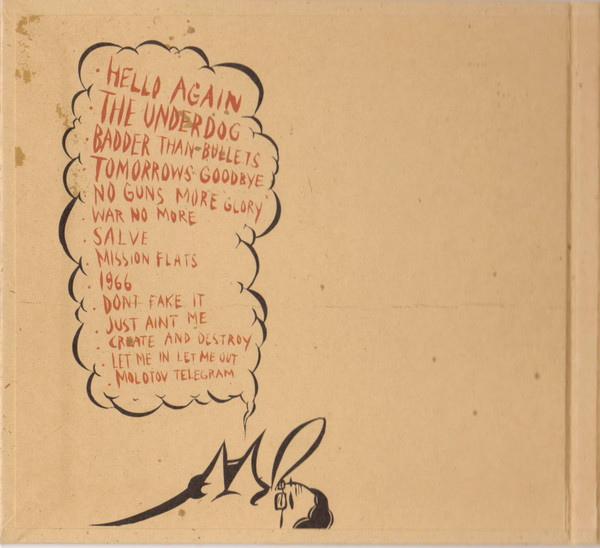 · HELLO AGAIN
· THE UNDERDOG
· BADDER THAN BULLETS
· TOMORROWS GOODBYE
· NO GUNS MORE GLORY
· WAR NO MORE
· SALVE
· MISSION FLATS
· 1966
· DONT FAKE IT
· JUST AINT ME
· CREATE AND DESTROY
· LET ME IN LET ME OUT
· MOLOTOV TELEGRAM